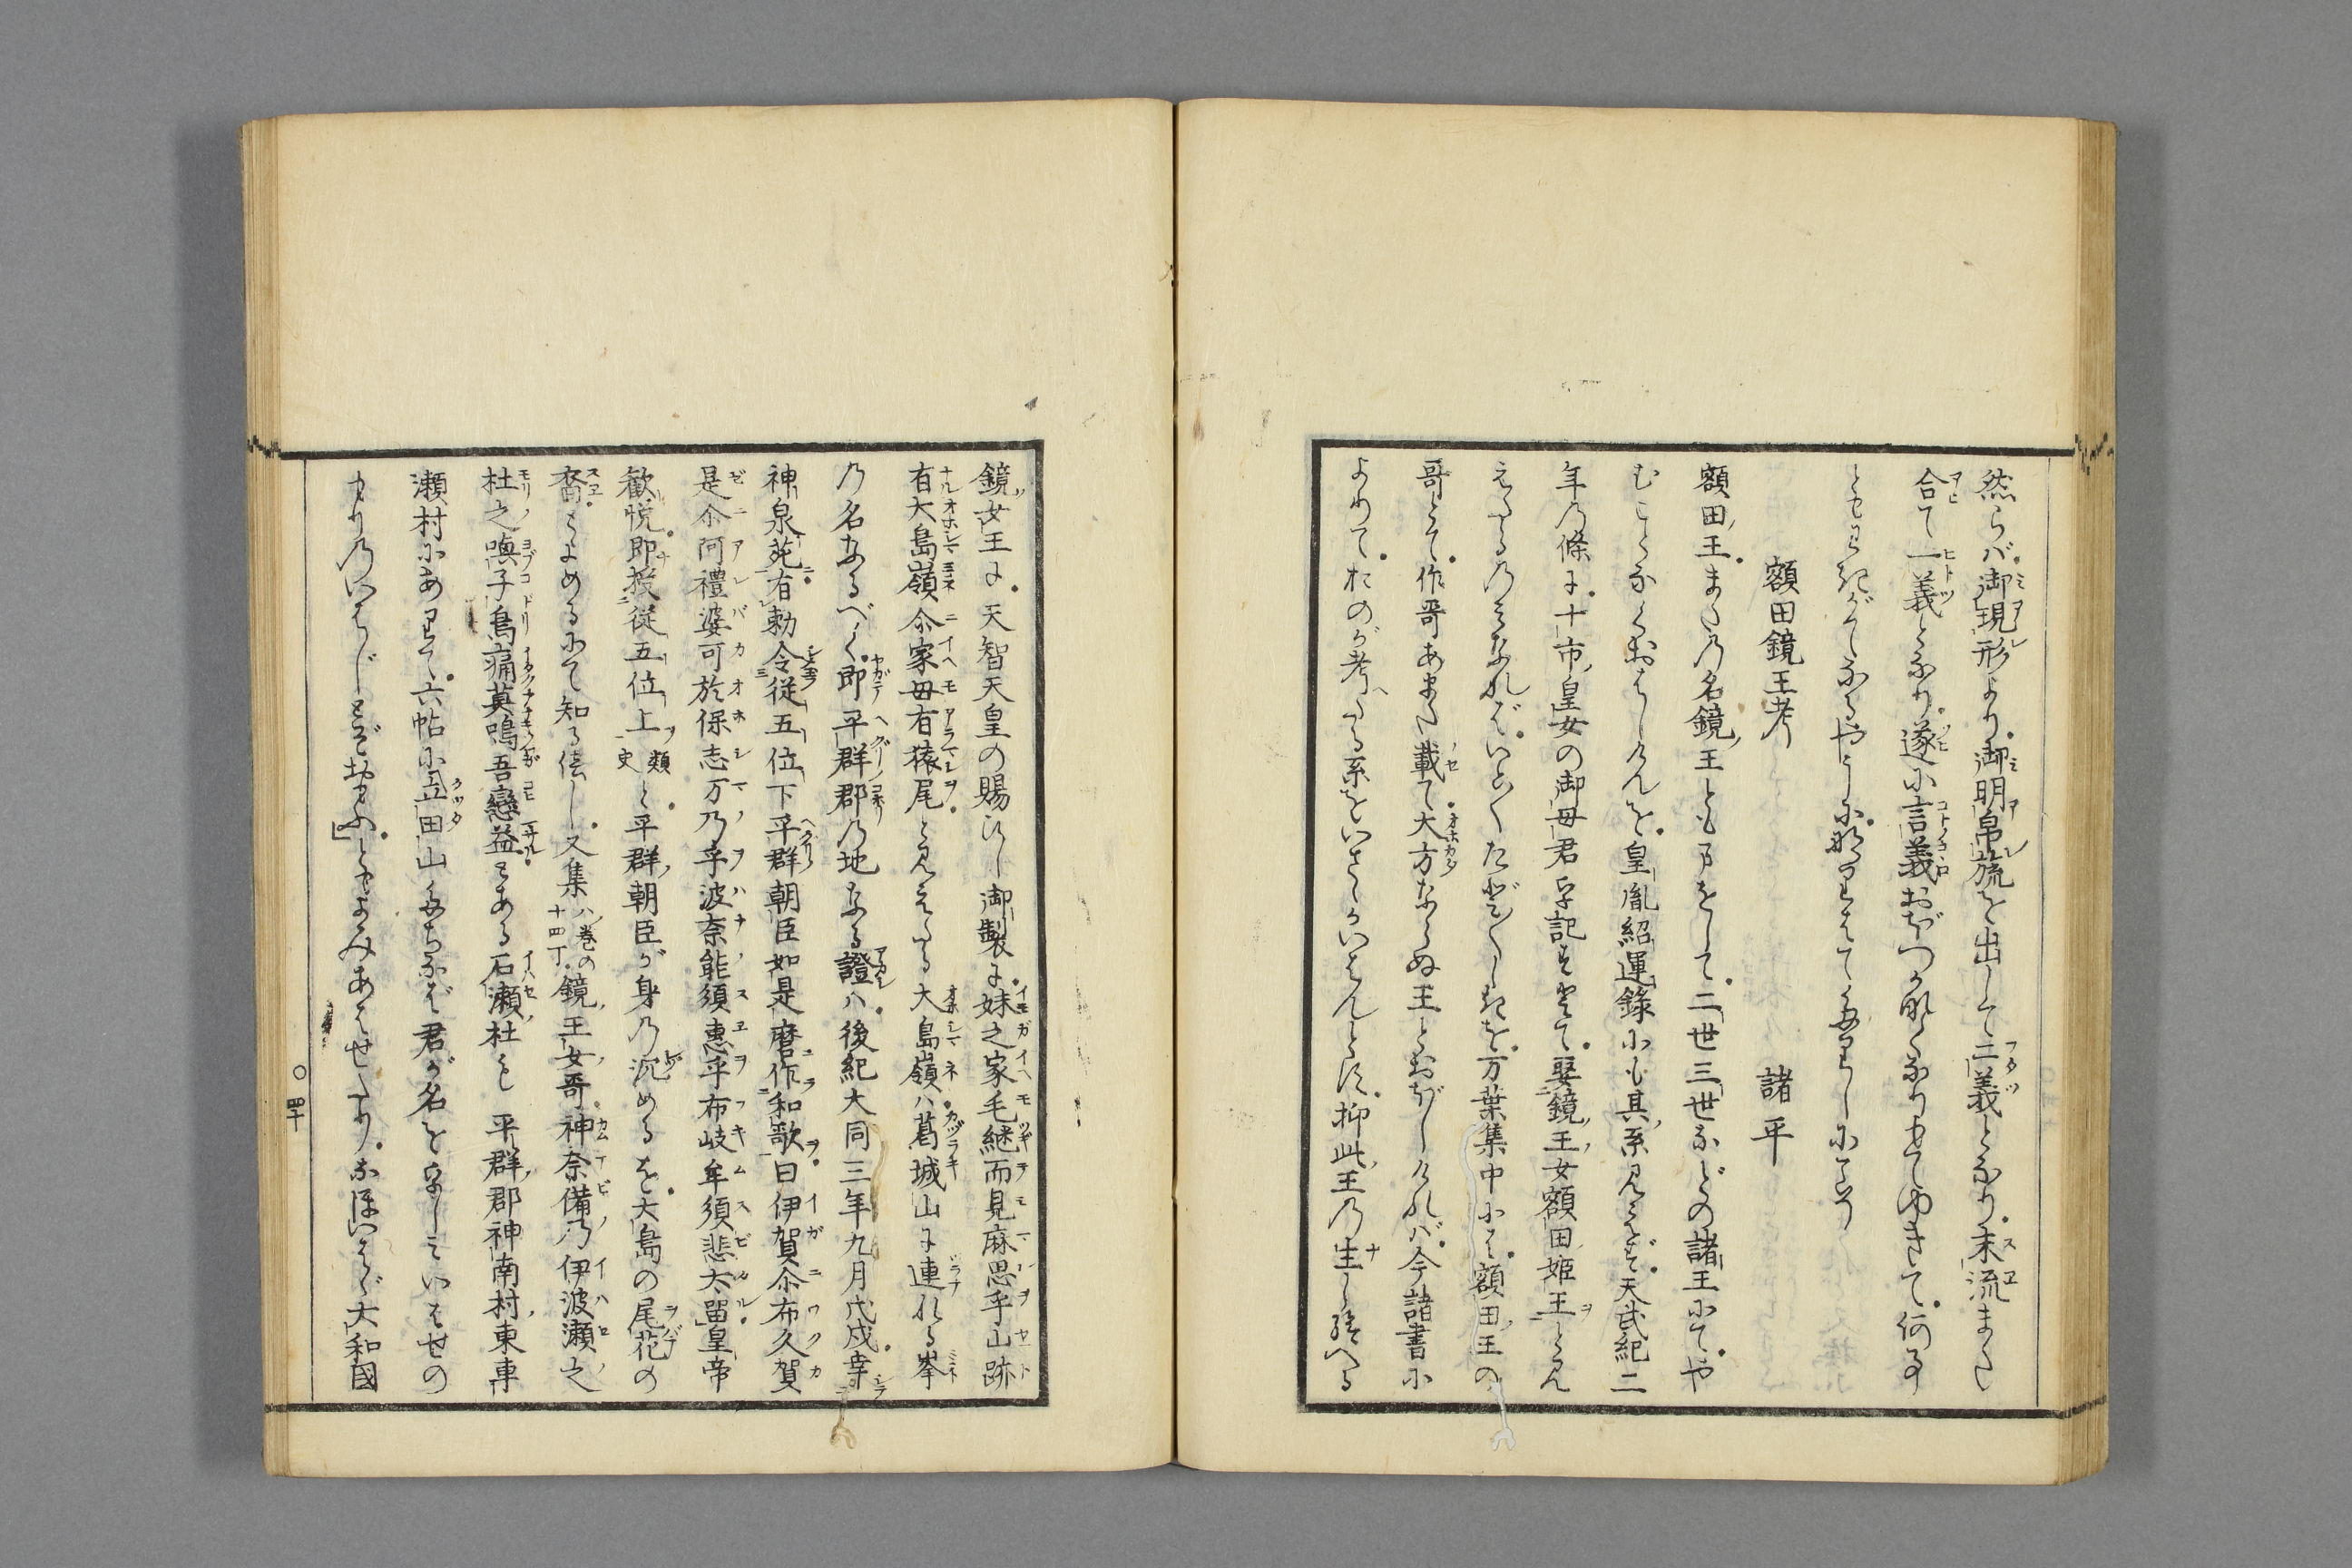 然らバ御現形より御明帛旒を出して二義となり末流また
合て一義となり遂に言義おぼつか那くなりもてゆきて何事
額田鏡王考　諸平
額田王またの名鏡王とも申をして二世三世などの諸王にてや
むことなくおはしけんを皇胤紹運錄にも其系見えず天武紀二
年乃條に十市皇女の御母君を記すとて娶鏡王女額田姫王と見
えたるのみなれバいと〱たど〱しきを万葉集中には額田王の
哥とて作哥あまた載て大方ならぬ王とおぼしけれバ今諸書に
よめておのが考へたる系をいさゝかいはんとす抑此王乃生し給へる
鏡女王に天智天皇の賜ひし御製に妹之家毛継而見麻思乎山跡
有大島嶺尒家母有猿尾と見えたる大島嶺ハ葛城山に連れる峯
乃名なるべく即平群郡乃地なる證ハ後紀大同三年九月戊戌幸
神泉苑有勅令従五位下平群朝臣如是麿作和歌曰伊賀尒布久賀
是尒阿禮婆可於保志万乃乎波奈能須惠乎布岐牟須悲太留皇帝
歓悦即授従五位上類史と平群朝臣が身乃沉めるを大島の尾花の
裔とよめるにて知る倍し又集八巻の十四丁鏡王女哥神奈備乃伊波瀬之
杜之喚子鳥痛莫鳴吾戀益とある石瀬杜も平群郡神南村東車
瀬村にありて六帖に立田山たちなバ君が名ををしみいはせの
もりのいはじとぞおもふとよみあはせたりなほいはゞ大和國
○四十